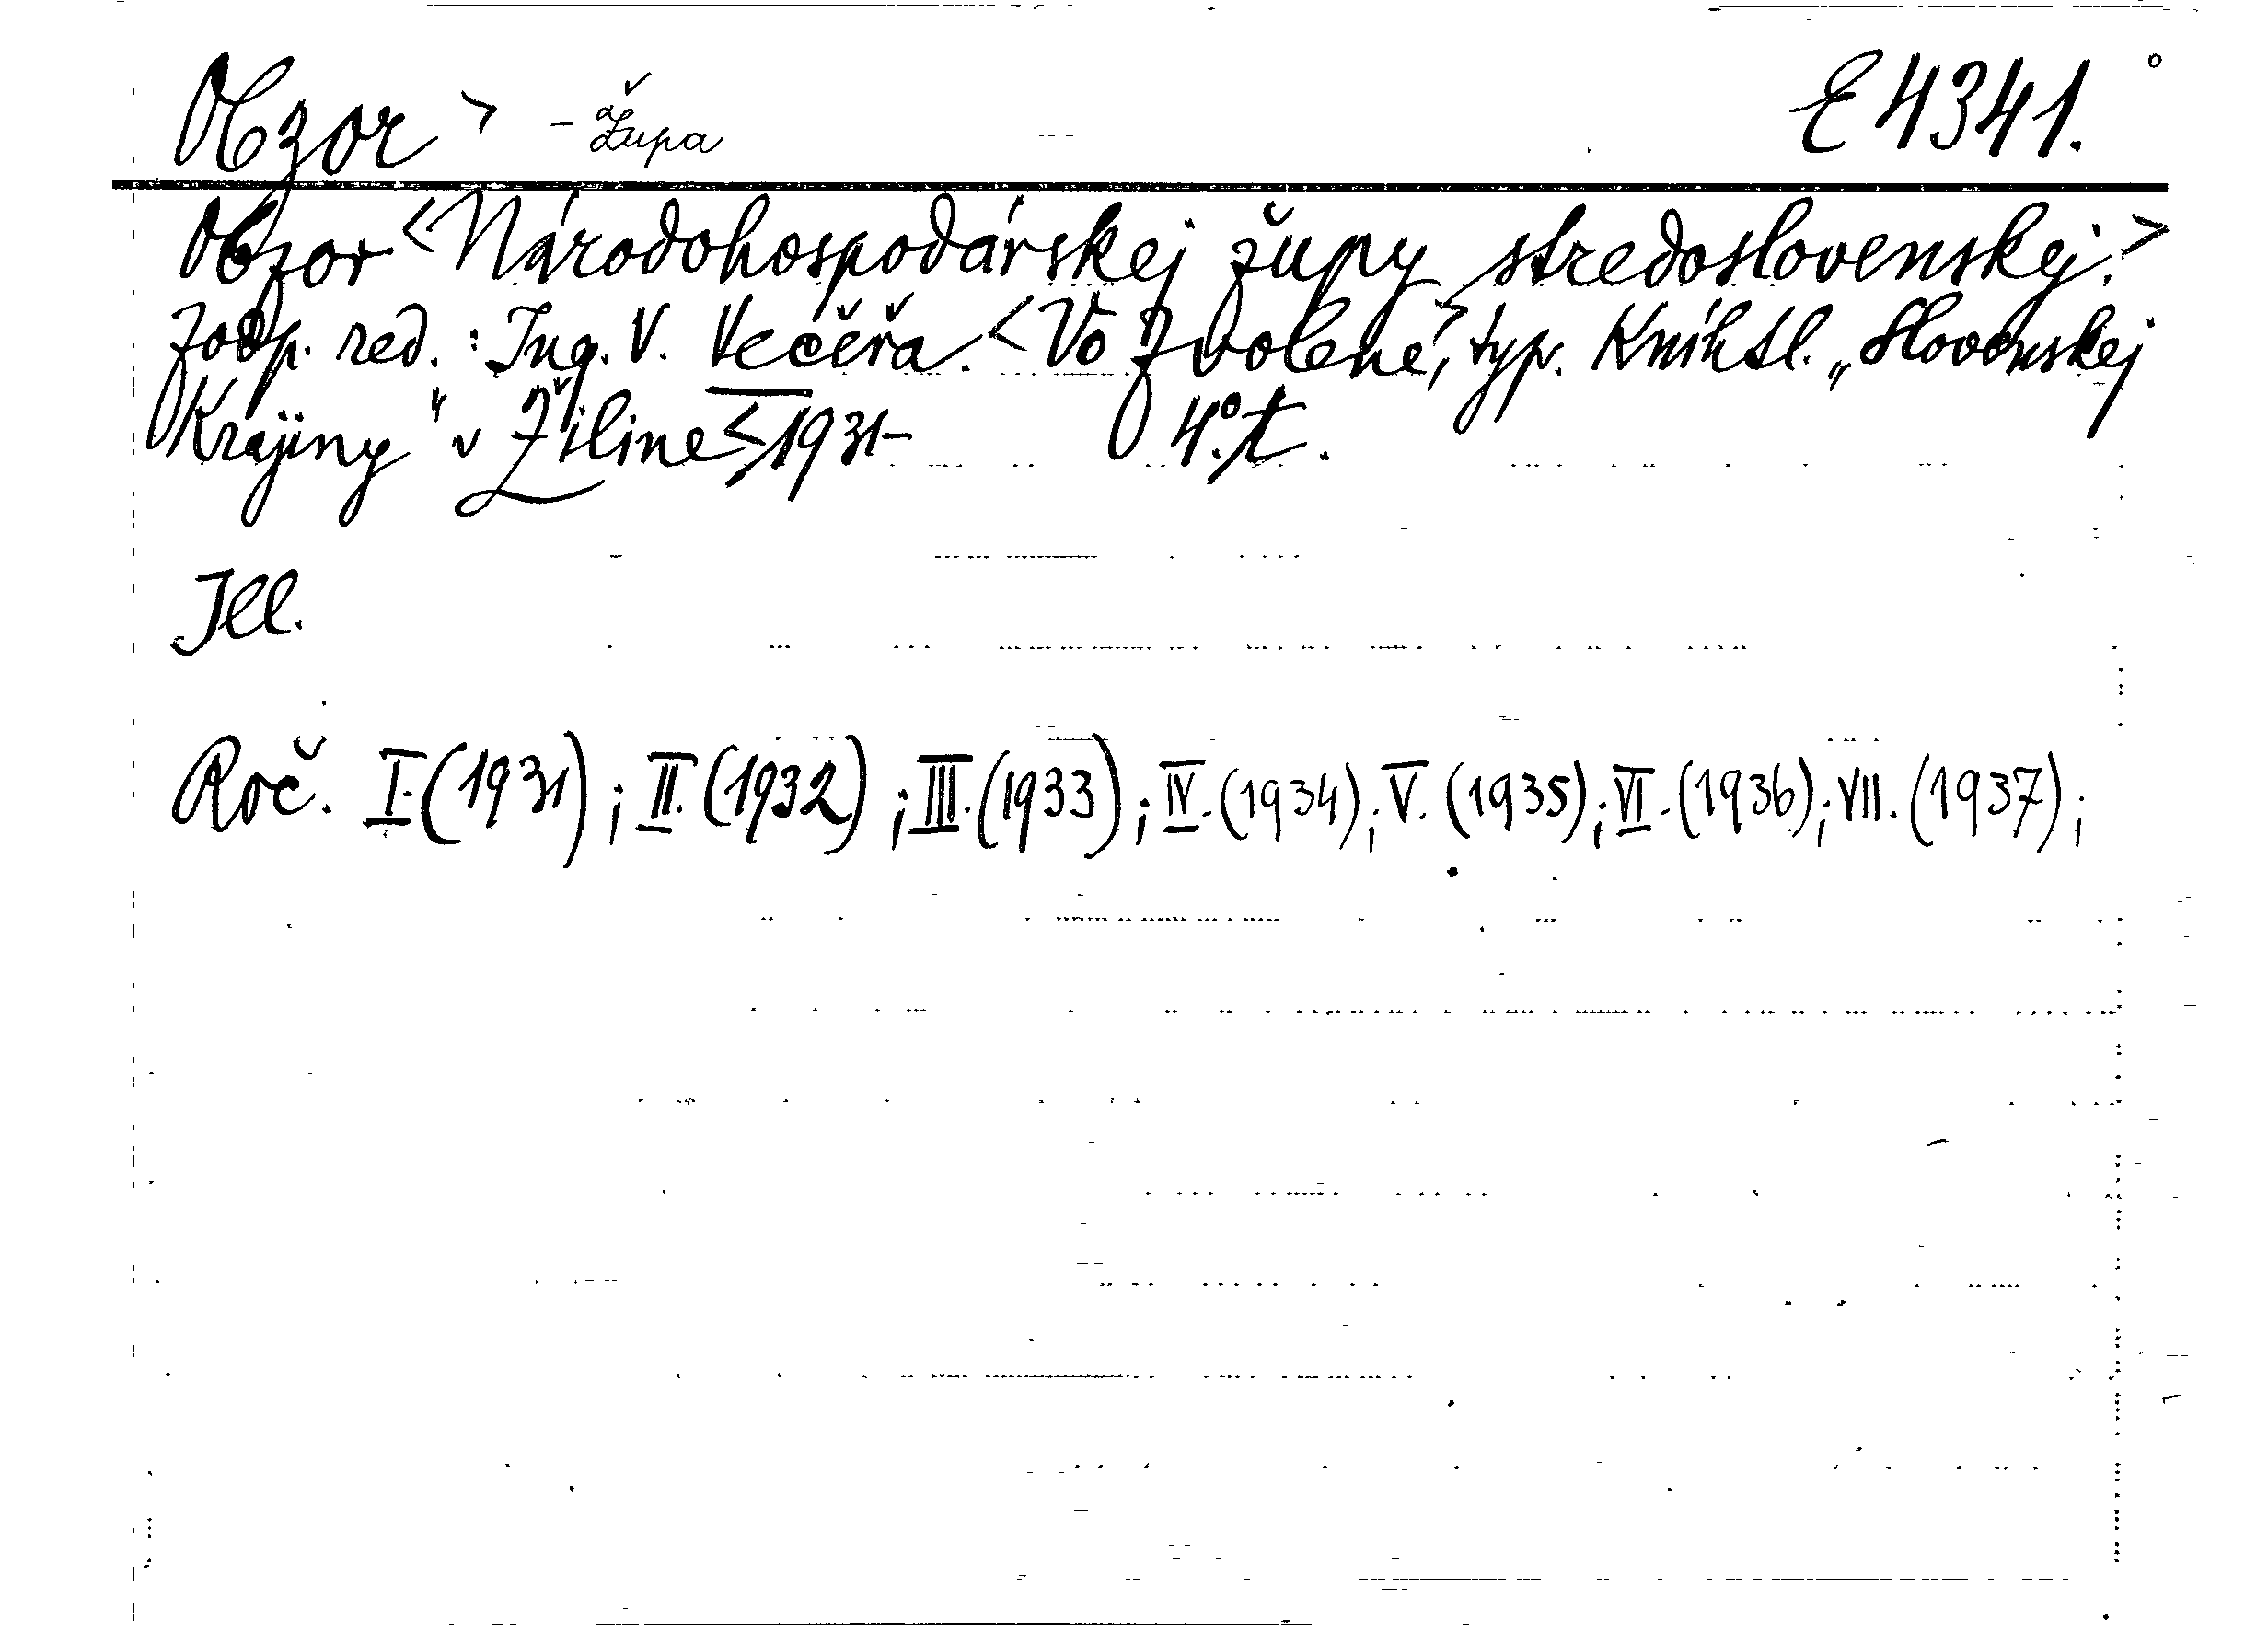 Obzor > - Župa E 4341.°
Obzor <Národohospodárskej župy stredoslovenskej.>
Zodp. red.: Ing. V. Večěřa. <Vo Zvolene>, typ. Kníhtl. „Slovenskej
Krajiny" v Žiline <1931- 4°. t.
Ill.
Roč. I. (1931); II. (1932); III. (1933); IV. (1934); V. (1935); VI. (1936); VII. (1937);